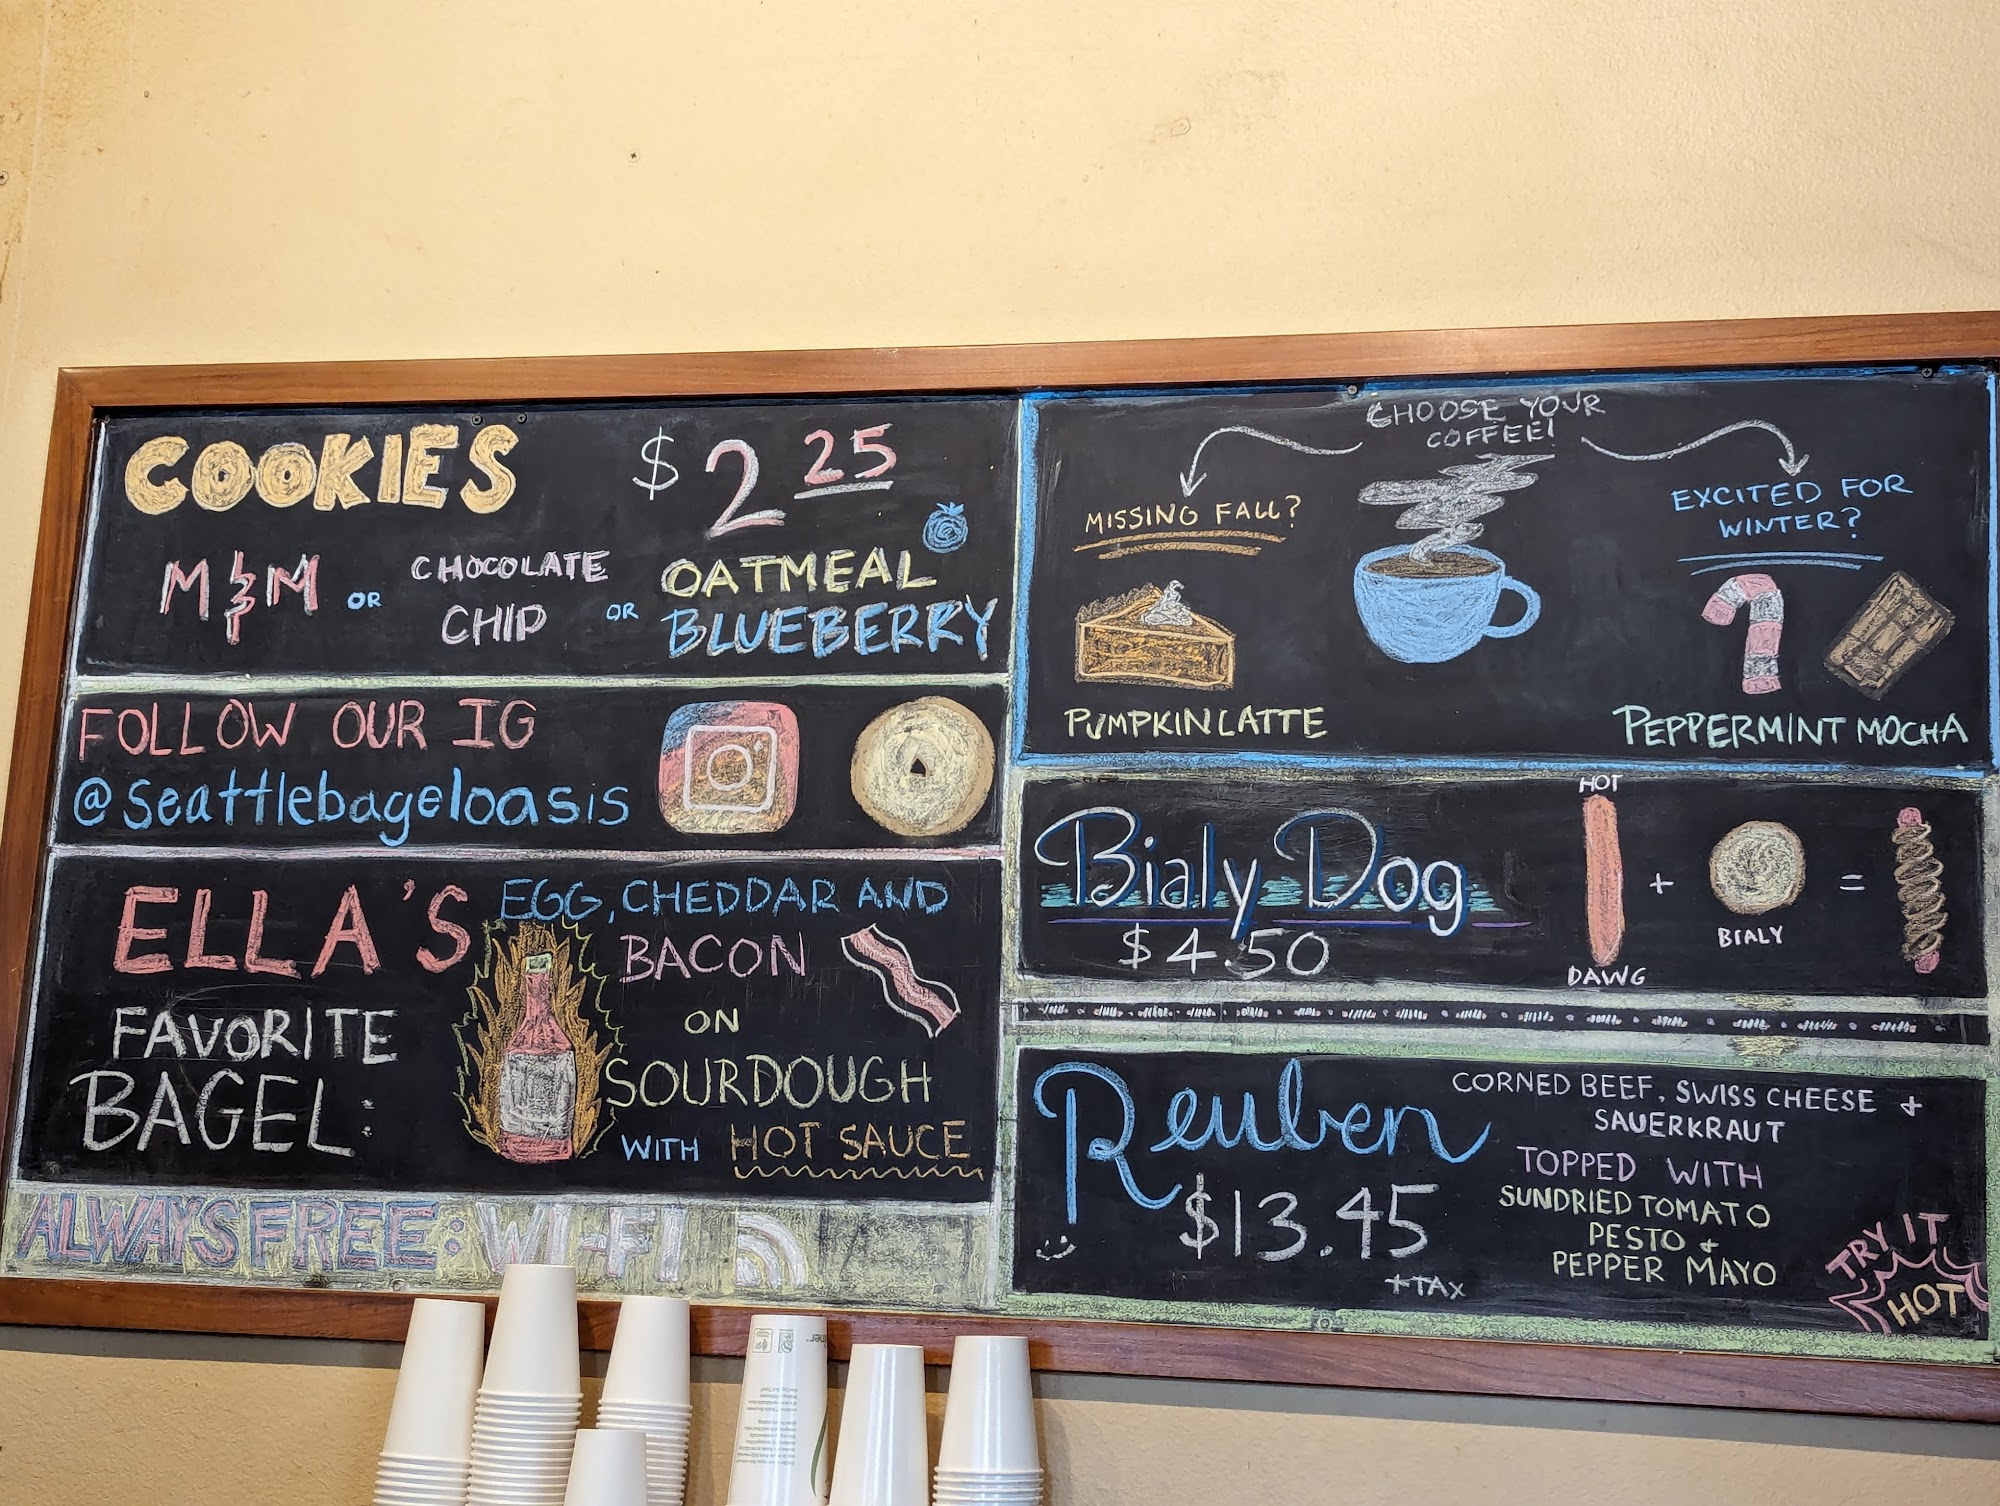 COOKIES $2.25
M&M OR CHOCOLATE CHIP OR OATMEAL BLUEBERRY
FOLLOW OUR IG
@seattlebageloasis
ELLA'S
FAVORITE
BAGEL:
EGG, CHEDDAR AND
BACON
ON
SOURDOUGH
WITH HOT SAUCE
ALWAYS FREE: WI-FI
CHOOSE YOUR
COFFEE!
MISSING FALL?
PUMPKIN LATTE
EXCITED FOR
WINTER?
PEPPERMINT MOCHA
Bialy Dog
$4.50
HOT
DAWG
+
BIALY
=
Reuben
$13.45
+TAX
CORNED BEEF, SWISS CHEESE +
SAUERKRAUT
TOPPED WITH
SUNDRIED TOMATO
PESTO +
PEPPER MAYO
TRY IT
HOT